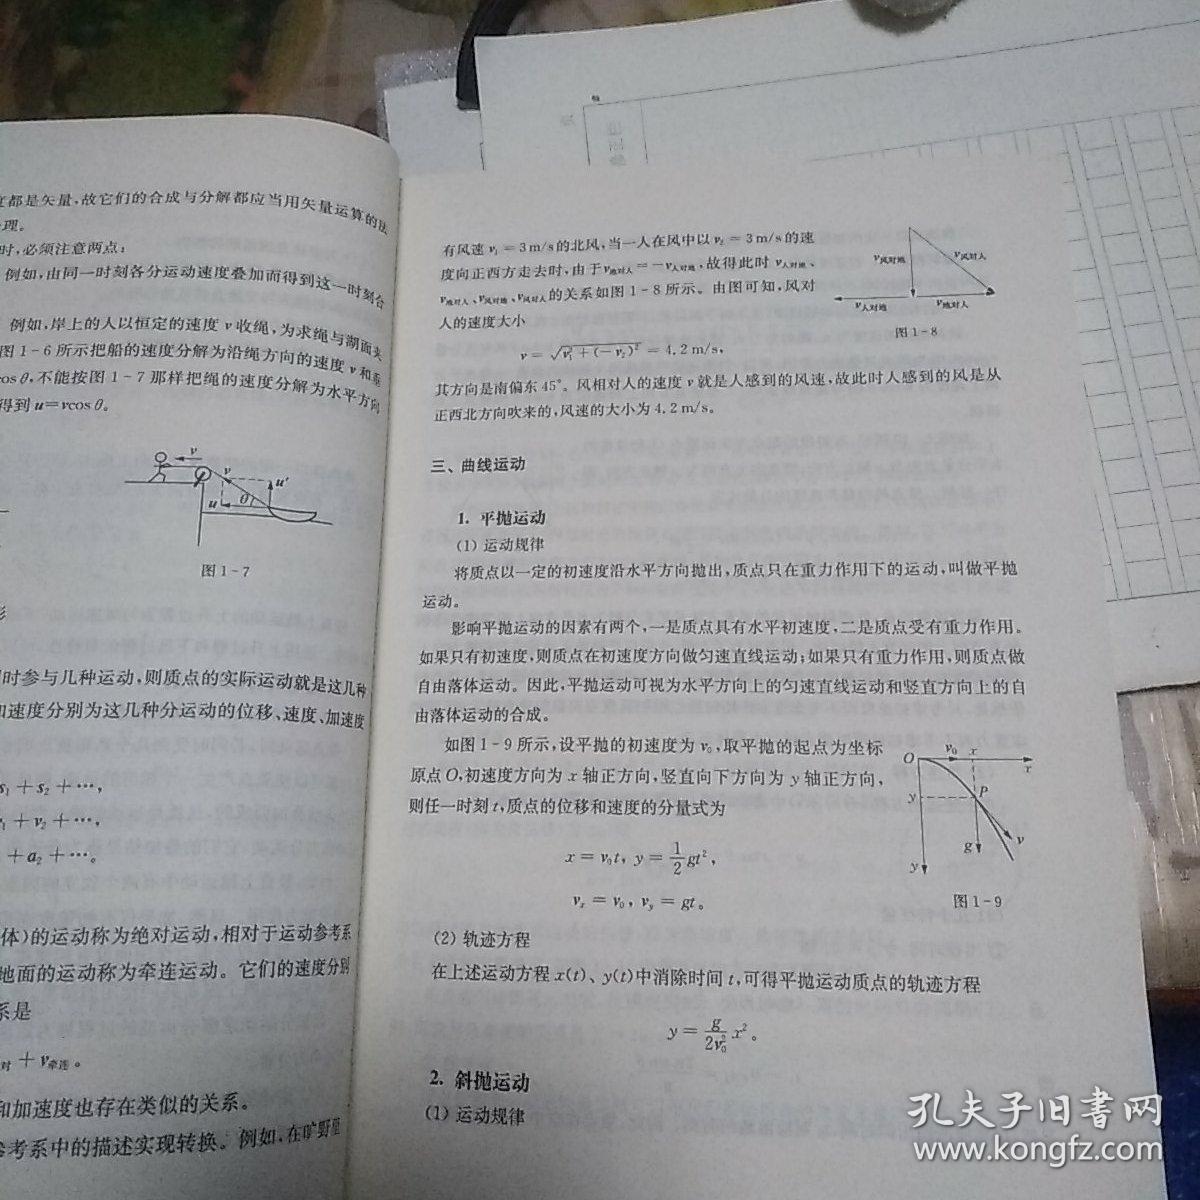 度都是矢量,故它们的合成与分解都应当用矢量运算的法
理。
时,必须注意两点:
例如,由同一时刻各分运动速度叠加而得到这一时刻合
例如,岸上的人以恒定的速度 v 收绳,为求绳与湖面夹
图 1-6 所示把船的速度分解为沿绳方向的速度 v 和垂
cos θ,不能按图 1-7 那样把绳的速度分解为水平方向
得到 u=vcos θ。
v
v
u'
u
θ
图 1-7
时参与几种运动,则质点的实际运动就是这几种
速度分别为这几种分运动的位移、速度、加速度
s₁ + s₂ + ⋯,
v₁ + v₂ + ⋯,
+ a₂ + ⋯。
体)的运动称为绝对运动,相对于运动参考系
地面的运动称为牵连运动。它们的速度分别
系是
对 + v牵连。
和加速度也存在类似的关系。
参考系中的描述实现转换。例如,在旷野里
有风速 v₁ = 3 m/s 的北风,当一人在风中以 v₂ = 3 m/s 的速
度向正西方走去时,由于 v地对人 = -v人对地,故得此时 v人对地、
v地对人、v风对地、v风对人的关系如图 1-8 所示。由图可知,风对
人的速度大小
v风对地
v风对人
v人对地
v地对人
图 1-8
v = √(v₁² + (-v₂)²) = 4.2 m/s,
其方向是南偏东 45°。风相对人的速度 v 就是人感到的风速,故此时人感到的风是从
正西北方向吹来的,风速的大小为 4.2 m/s。
三、曲线运动
1. 平抛运动
(1) 运动规律
将质点以一定的初速度沿水平方向抛出,质点只在重力作用下的运动,叫做平抛
运动。
影响平抛运动的因素有两个,一是质点具有水平初速度,二是质点受有重力作用。
如果只有初速度,则质点在初速度方向做匀速直线运动;如果只有重力作用,则质点做
自由落体运动。因此,平抛运动可视为水平方向上的匀速直线运动和竖直方向上的自
由落体运动的合成。
如图 1-9 所示,设平抛的初速度为 v₀,取平抛的起点为坐标
原点 O,初速度方向为 x 轴正方向,竖直向下方向为 y 轴正方向,
则任一时刻 t,质点的位移和速度的分量式为
O
v₀
x
x
y
P
g
v
y
图 1-9
x = v₀t, y = 1/2 gt²,
vₓ = v₀, v_y = gt。
(2) 轨迹方程
在上述运动方程 x(t)、y(t)中消除时间 t,可得平抛运动质点的轨迹方程
y = g/2v₀² x²。
2. 斜抛运动
(1) 运动规律
孔夫子旧书网
www.kongfz.com